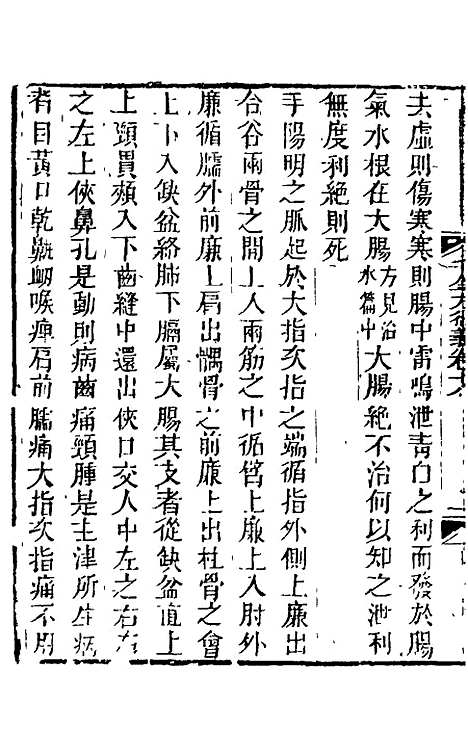 去虛則傷寒寒則腸中雷鳴泄青白之利而發於腸
氣水根在大腸方見治水篇中大腸絕不治何以知之泄利
無度利絕則死
手陽明之脈起於大指次指之端循指外側上廉出
合谷兩骨之間上入兩筋之中循臂上廉上入肘外
廉循臑外前廉上肩出髃骨之前廉上出柱骨之會
上下入缺盆絡肺下膈屬大腸其支者從缺盆直上
上頸貫頰入下齒縫中還出俠口交人中左之右右
之左上俠鼻孔是動則病齒痛頸腫是主津所生病
者目黃口乾鼽衄喉痺肩前臑痛大指次指痛不用
千金方衍義卷十八